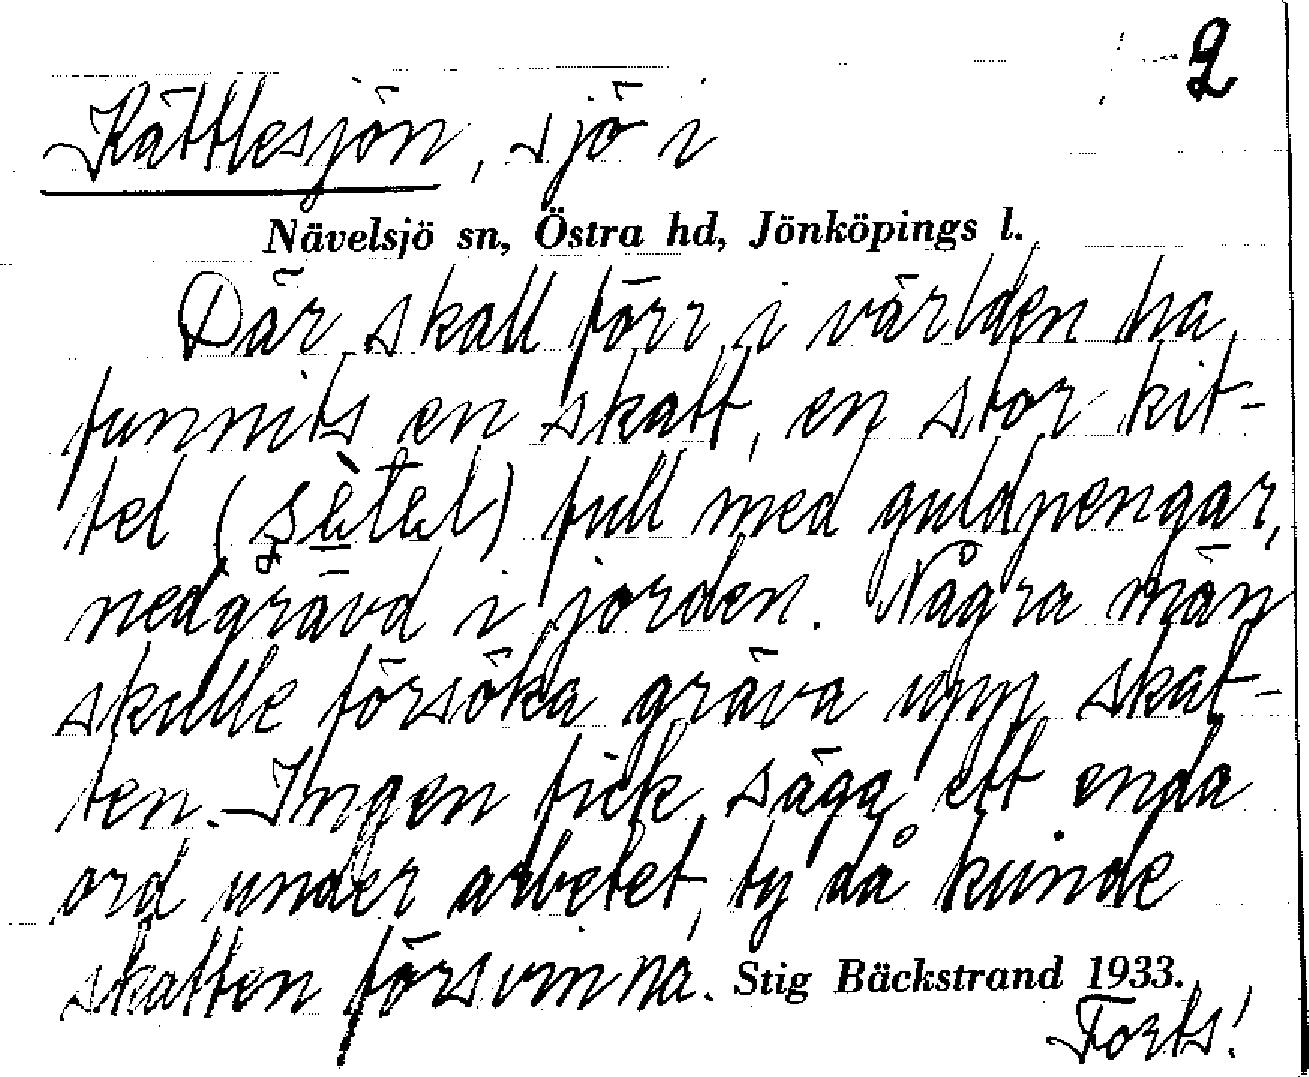 2
Kättlesjön, sjö i
Nävelsjö sn, Östra hd, Jönköpings l.
Där skall förr i världen ha
funnits en skatt, en stor kit-
tel () full med guldpengar,
nedgrävd i jorden. Några män
skulle försöka gräva upp skat-
ten. Ingen fick säga ett enda
ord under arbetet, ty då kunde
skatten försvinna. Stig Bäckstrand 1933.
Forts!